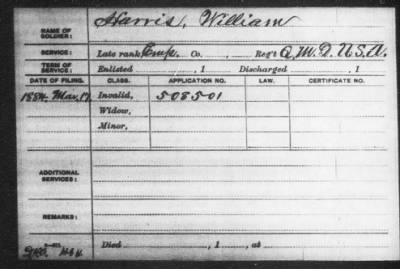 NAME OF SOLDIER: Harris, William
SERVICE: Late rank, Emp. Co. , Reg't Q.M.D. U.S.A.
TERM OF SERVICE: Enlisted , 1 Discharged , 1
DATE OF FILING. CLASS. APPLICATION NO. LAW. CERTIFICATE NO.
1884 Mar. 17 Invalid, 508501
Widow,
Minor,
ADDITIONAL SERVICES:
REMARKS:
Died , 1 , at